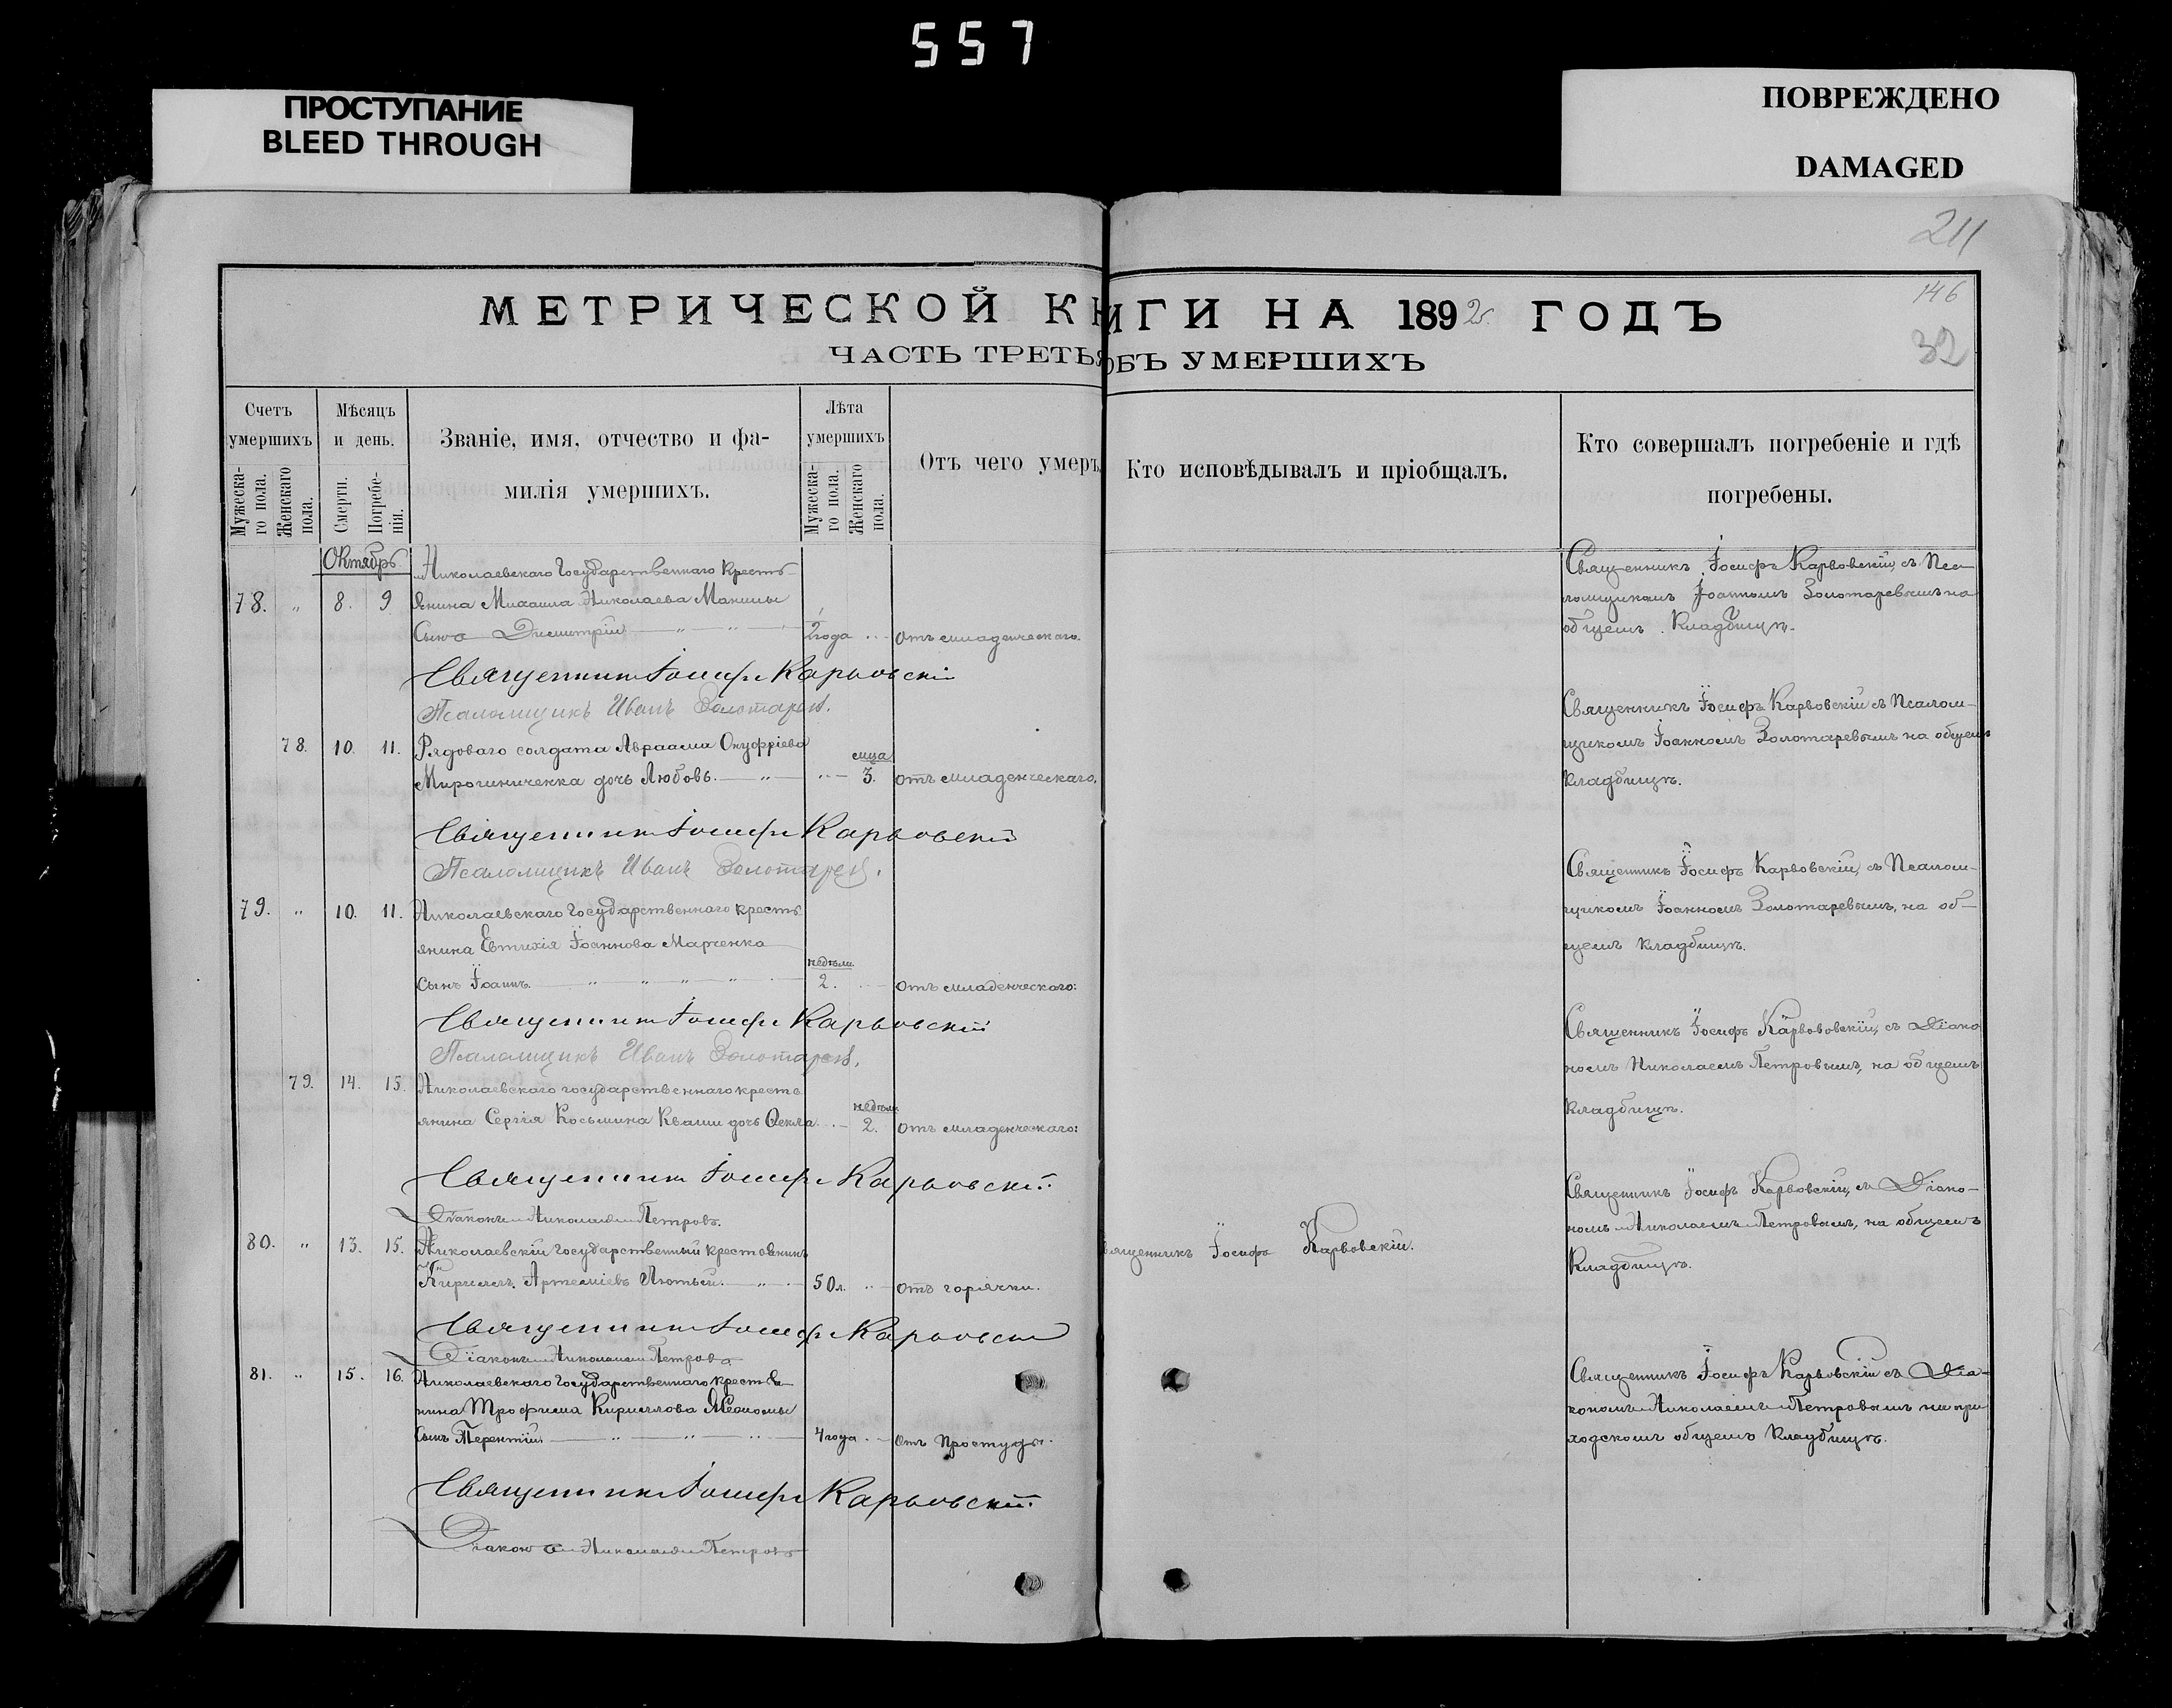 557
ПРОСТУПАНИЕ
BLEED THROUGH
ПОВРЕЖДЕНО
DAMAGED
211
146
32
МЕТРИЧЕСКОЙ КНИГИ НА 1892 ГОДЪ
ЧАСТЬ ТРЕТЬЯ ОБЪ УМЕРШИХЪ
Счетъ умершихъ
Мужеска-
го пола.
Женскаго
пола.
Мѣсяцъ и день.
Смерти.
Погребе-
нія.
Званіе, имя, отчество и фа-
милія умершихъ.
Лѣта умершихъ
Мужеска-
го пола.
Женскаго
пола.
Отъ чего умеръ
Кто исповѣдывалъ и пріобщалъ.
Кто совершалъ погребеніе и гдѣ
погребены.
Октябрь
Николаевскаго Государственнаго кресть-
78. " 8. 9 янина Михаила Николаева
Сынъ Димитрій 2 года отъ младенческаго.
Священникъ Іосифъ Карвовскій, съ Пса-
ломщикомъ Іоанномъ Золотаревымъ на
общемъ Кладбищѣ.
Священникъ Іосифъ Карвовскій
Псаломщикъ Иванъ Золотаревъ.
78. 10. 11. Рядоваго солдата Авраама Онуфріева
Мирошниченка дочь Любовь. " мца 3. отъ младенческаго.
Священникъ Іосифъ Карвовскій съ Псалом-
щикомъ Іоанномъ Золотаревымъ на общемъ
Кладбищѣ.
Священникъ Іосифъ Карвовскій
Псаломщикъ Иванъ Золотаревъ.
79. " 10. 11. Николаевскаго Государственнаго кресть-
янина Евтихія Іоаннова Марченка
сынъ Іоаннъ. недѣли 2. отъ младенческаго:
Священникъ Іосифъ Карвовскій, съ Псалом-
щикомъ Іоанномъ Золотаревымъ, на об-
щемъ кладбищѣ.
Священникъ Іосифъ Карвовскій
Псаломщикъ Иванъ Золотаревъ.
79. 14. 15. Николаевскаго государственнаго кресть
янина Сергія Косьмина Кваши дочь Ѳекла. недѣли 2. отъ младенческаго:
Священникъ Іосифъ Карвововскій, съ Діако-
номъ Николаемъ Петровымъ, на общемъ
Кладбищѣ.
Священникъ Іосифъ Карвовскій.
Діаконъ Николай Петровъ.
80. " 13. 15. Николаевскій Государственный крестьянинъ
Кириллъ Артеміевъ Лютый. 50 л. " отъ горячки.
Священникъ Іосифъ Карвовскій.
Священникъ Іосифъ Карвовскій, съ Діако-
номъ Николаемъ Петровымъ, на общемъ
Кладбищѣ.
Священникъ Іосифъ Карвовскій
Діаконъ Николай Петровъ
81. " 15. 16. Николаевскаго Государственнаго крестья-
нина Трофима Кириллова
Сынъ Терентій. 4 года отъ Простуды.
Священникъ Іосифъ Карвовскій съ Діа-
кономъ Николаемъ Петровымъ на при
ходскомъ общемъ Кладбищѣ.
Священникъ Іосифъ Карвовскій.
Діаконъ Николай Петровъ